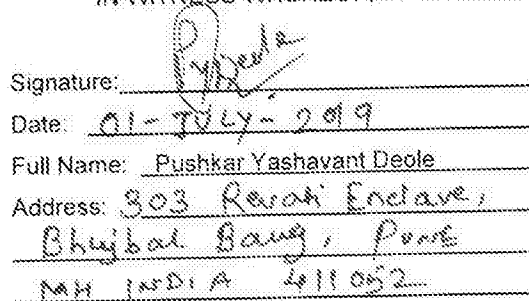 IN WITNESS
Signature: PyDeole
Date: 01-JULY-2019
Full Name: Pushkar Yashavant Deole
Address: 303 Revati Enclave,
Bhujbal Baug, Pune
MH INDIA 411052